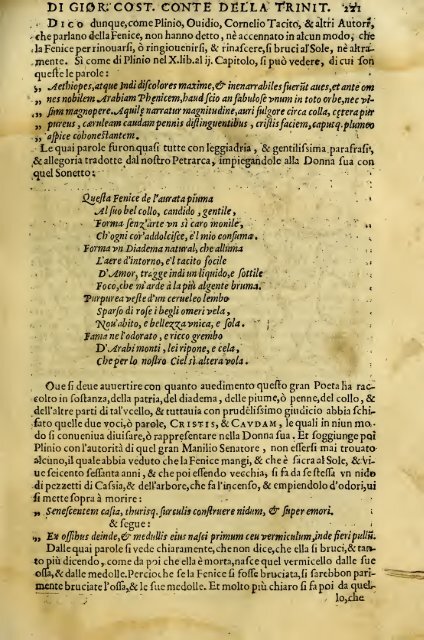 DI GIOR. COST. CONTE DELLA TRINIT. 221
DICO dunque, come Plinio, Ouidio, Cornelio Tacito, & altri Autori,
che parlano della Fenice, non hanno detto, nè accennato in alcun modo, che
la Fenice per rinouarsi, ò ringiouenirsi, & rinascere, si bruci al Sole, nè altra-
mente. Sì come di Plinio nel X. lib. al ij. Capitolo, si può vedere, di cui son
queste le parole:
„ Aethiopes, atque Indi discolores maxime, & inenarrabiles fuerũt aues, et ante om
„ nes nobilem Arabiam Phenicem, haud scio an fabulose vnum in toto orbe, nec vi-
„ sum magnopere. Aquilę narratur magnitudine, auri fulgore circa colla, cętera pur
„ pureus, cæruleam caudam pennis distinguentibus, cristis faciem, caputq. plumeo
„ apice cohonestantem.
Le quai parole furon quasi tutte con leggiadria, & gentilissima parafrasi,
& allegoria tradotte dal nostro Petrarca, impiegandole alla Donna sua con
quel Sonetto:
Questa Fenice de l'aurata piuma
Al suo bel collo, candido, gentile,
Forma senz'arte vn sì caro monile,
Ch'ogni cor'addolcisce, e'l mio consuma.
Forma vn Diadema natural, che alluma
L'aere d'intorno, e'l tacito focile
D'Amor, tragge indi un liquido, e sottile
Foco, che m'arde à la più algente bruma.
Purpurea veste d'un ceruleo lembo
Sparso di rose i begli omeri vela,
Nou'abito, e bellezza vnica, e sola.
Fama ne l'odorato, e ricco grembo
D'Arabi monti, lei ripone, e cela,
Che per lo nostro Ciel sì altera vola.
Oue si deue auuertire con quanto auedimento questo gran Poeta ha rac
colto in sostanza, della patria, del diadema, delle piume, ò penne, del collo, &
dell'altre parti di tal'vcello, & tuttauia con prudẽtissimo giudicio abbia schi-
fato quelle due voci, ò parole, CRISTIS, & CAVDAM, le quali in niun mo-
do si conueniua diuisare, ò rappresentare nella Donna sua. Et soggiunge poi
Plinio con l'autorità di quel gran Manilio Senatore, non essersi mai trouato
alcuno, il quale abbia veduto che la Fenice mangi, & che è sacra al Sole, & vi-
ue seicento sessanta anni, & che poi essendo vecchia, si fa da se stessa vn nido
di pezzetti di Cassia, & dell'arbore, che fa l'incenso, & empiendolo d'odori, ui
si mette sopra à morire:
„ Senescentem casia, thurisq. surculis construere nidum, & super emori.
& segue:
„ Ex ossibus deinde, & medullis eius nasci primum ceu vermiculum, inde fieri pullũ.
Dalle quai parole si vede chiaramente, che non dice, che ella si bruci, & tan-
to più dicendo, come da poi che ella è morta, nasce quel vermicello dalle sue
ossa, & dalle medolle. Percioche se la Fenice si fosse bruciata, si sarebbon pari-
mente bruciate l'ossa, & le sue medolle. Et molto più chiaro si fa poi da quel-
lo, che